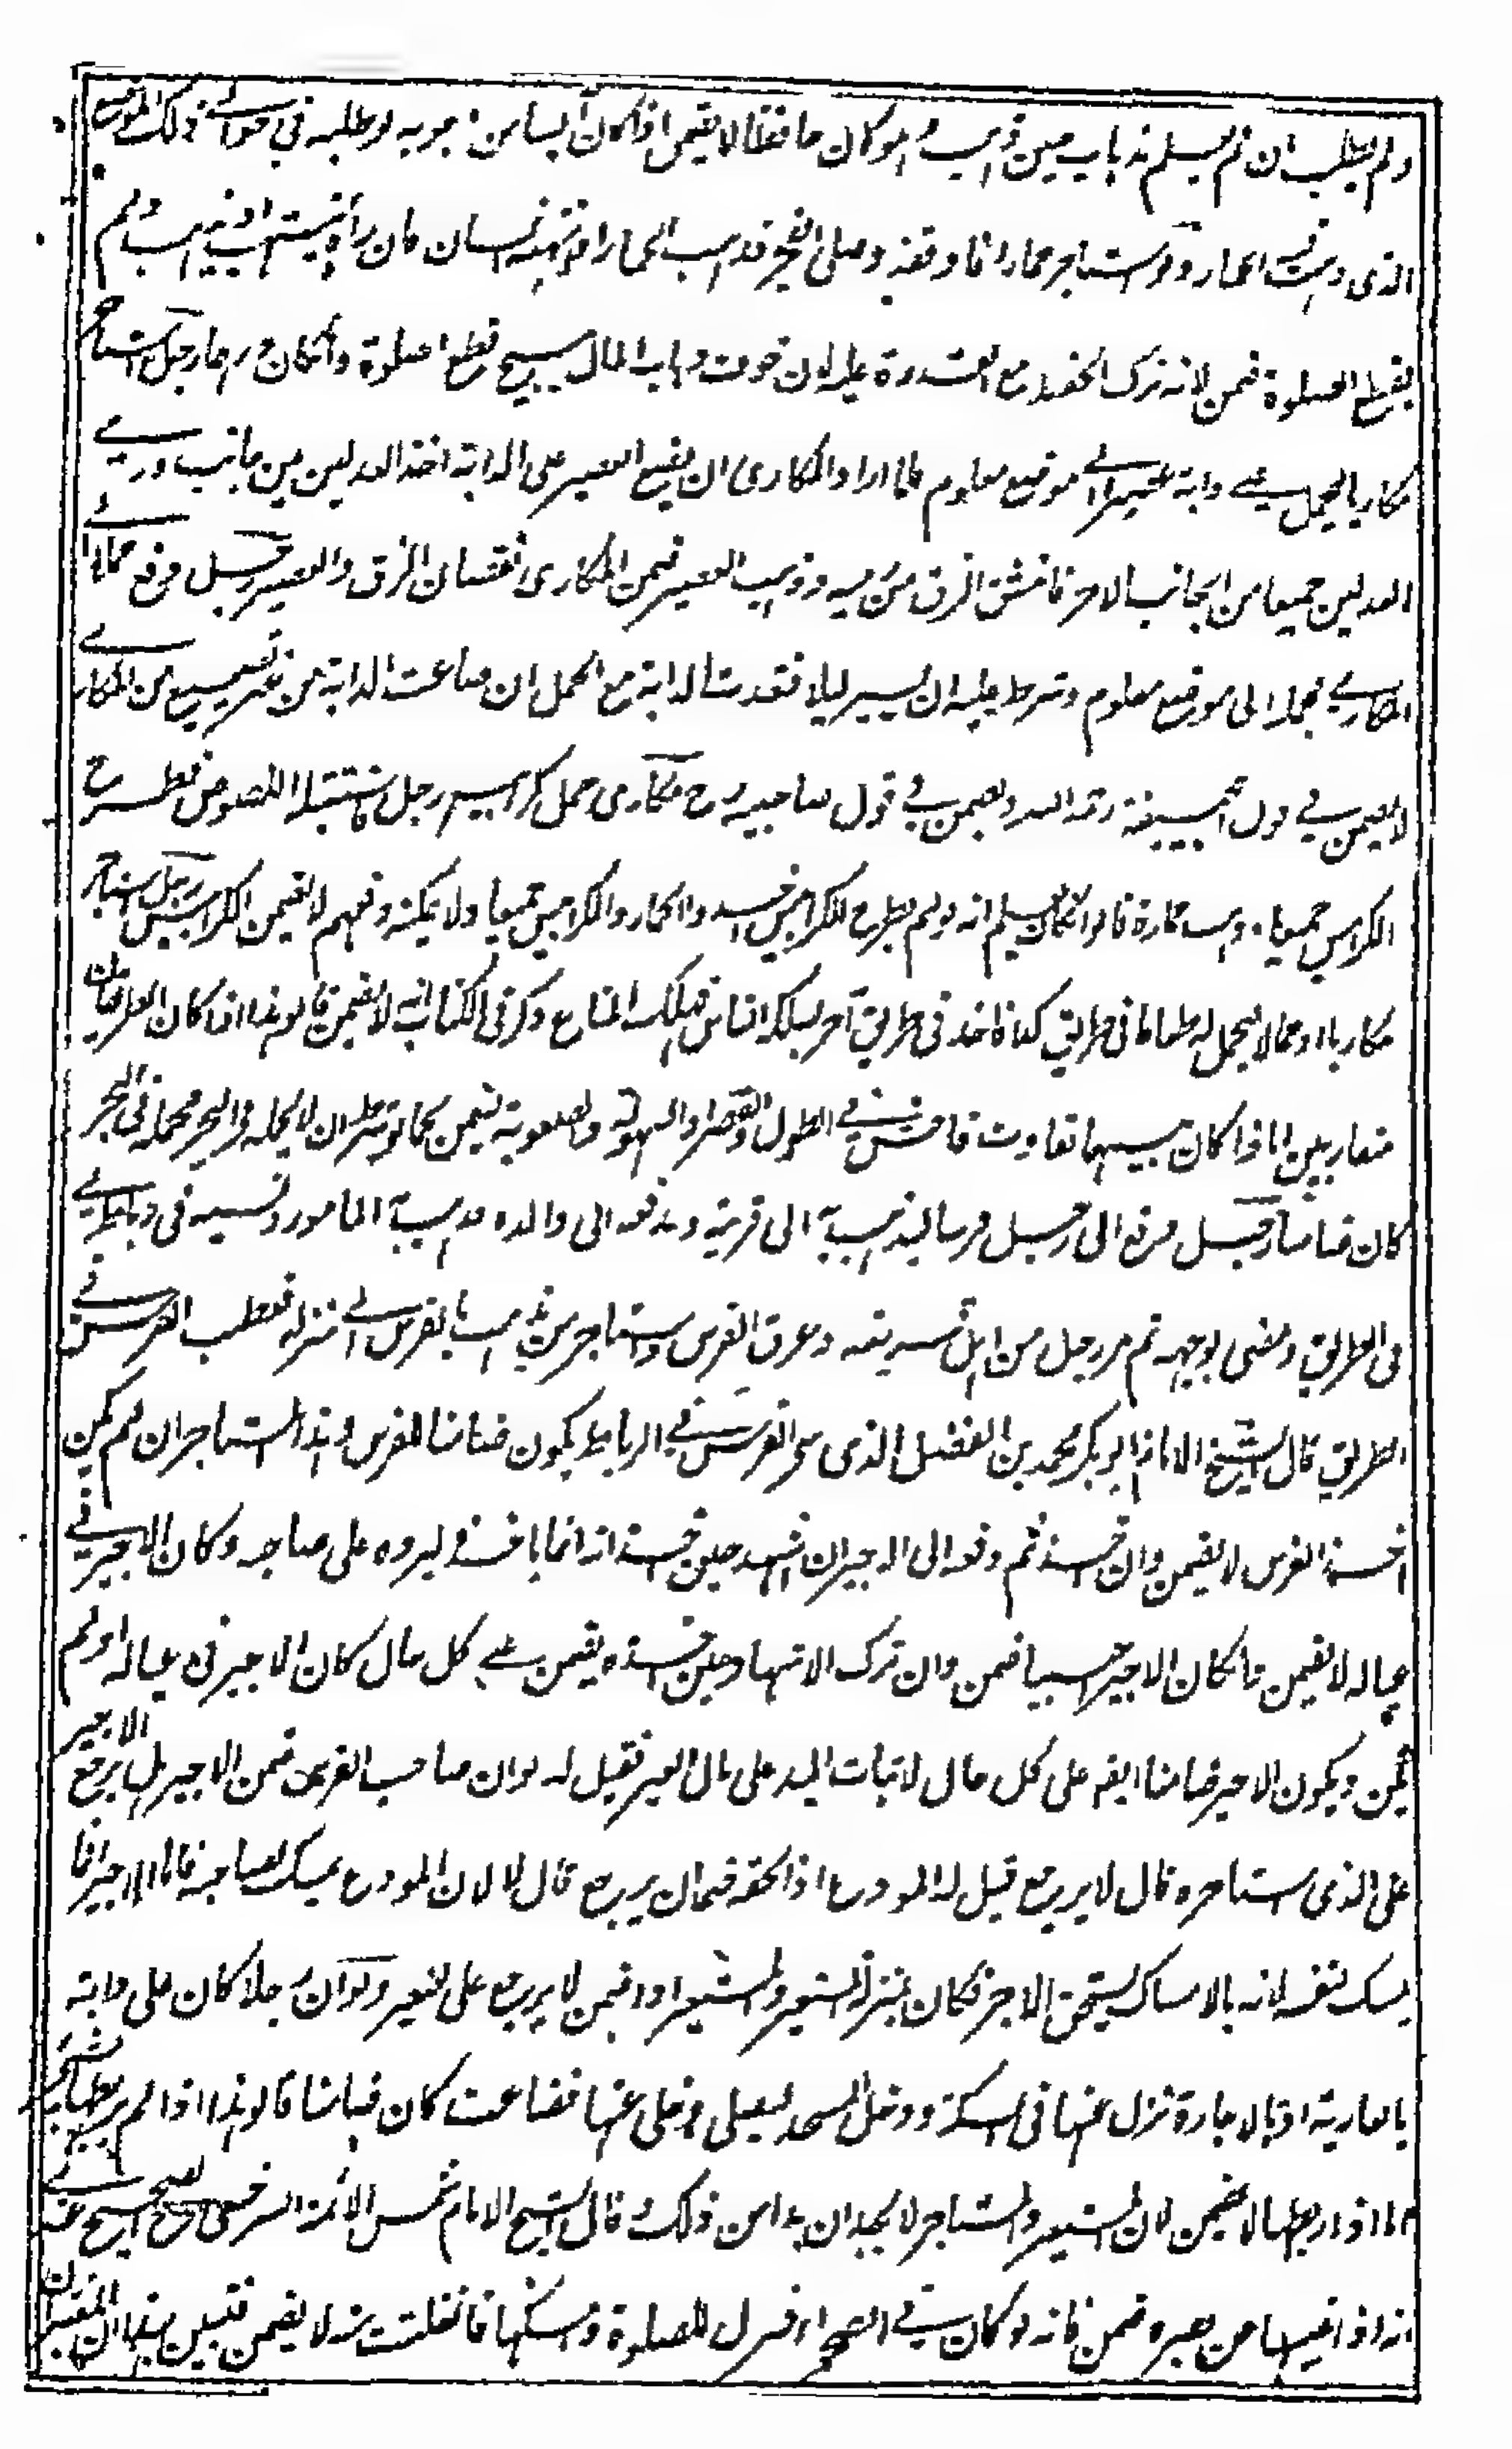 ولم يطلب ان لم يسلم بذهاب حين ذهب وهو كان حافظا لا يضمن اذا كان آيسا من وجوده لو طلبه في حوالي ذلك الموضع
الذى ذهب الحمار ولو استاجر حمارا فاوقفه وصلى الفجر فذهب الحمار او انتهبه انسان فان رآه ينتهب او يذهب ولم
يقطع الصلوة ضمن لانه ترك الحفظ مع القدرة عليه لان خوف ذهاب المال يبيح قطع الصلوة وان كان درهما رجل استاجر
مكاريا ليحمل على دابة عصيرا الى موضع معلوم فلما اراد المكارى ان يضع العصير على الدابة اخذ العدلين من جانب ورمى
العدلين جميعا من الجانب الآخر فانشق الزق من رميه وذهب العصير ضمن المكارى نقصان الزق والعصير رجل دفع
المكارى حملا الى موضع معلوم وشرط عليه ان يسير ليلا ففقدت الدابة مع الحمل ان ضاعت الدابة من غير تضييع من المكارى
لا يضمن في قول ابيحنيفة رحمه الله ويضمن في قول صاحبيه رح مكارى حمل كرابيس رجل فاستقبله اللصوص فطرح
الكرابيس جميعا وذهب بحماره قالوا ان كان يعلم انه لو لم يطرح الكرابيس اخذوا الحمار والكرابيس جميعا ولا يمكنه دفعهم لا يضمن الكرابيس رجل استاجر
مكاريا او حمالا ليحمل له طعاما في طريق كذا فاخذ في طريق آخر يسلكه الناس فهلك المتاع ذكر في الكتاب انه لا يضمن قالوا هذا اذا كان الطريقان
متقاربين اما اذا كان بينهما تفاوت فاحش في الطول والقصر والسهولة والصعوبة يضمن كما لو شرط ان لا يحمله في البحر فحمله في البحر
كان ضامنا رجل دفع الى رجل فرسا ليذهب به الى قرية ويدفعه الى والده فذهب به المامور ونسيه في رباط
في الطريق ومضى لوجهه ثم مر رجل من اهل قريته وعرف الفرس واستاجر من يذهب بالفرس الى منزله فعطب الفرس في
الطريق قال الشيخ الامام ابو بكر محمد بن الفضل الذى الفرس في الرباط يكون ضامنا للفرس وهذا المستاجر ان لم يكن
اخذ الفرس لا يضمن وان اخذه ثم دفعه الى الاجير ان اشهد حين اخذه انه انما ياخذه ليرده على صاحبه وكان الاجير في
عياله لا يضمن فان كان الاجير اجنبيا ضمن وان ترك الاشهاد حين اخذه يضمن على كل حال كان الاجير في عياله او لم
يكن ويكون الاجير ضامنا ايضا على كل حال لاثبات اليد على مال الغير فقيل له لو ان صاحب الفرس ضمن الاجير هل يرجع الاجير
على الذى استاجره قال لا يرجع قيل له المودع اذا لحقه ضمان يرجع قال لا لان المودع يمسك لصاحبه فاما الاجير انما
يمسك لنفسه لانه بالامساك يستحق الاجر فكان بمنزلة المستعير والمستعير اذا ضمن لا يرجع على المعير ولو ان رجلا كان على دابة
بالعارية او بالاجارة فنزل عنها في السكة ودخل المسجد ليصلى وخلى عنها فضاعت كان ضامنا قالوا هذا اذا لم يربطها بشئ
اما اذا ربطها لا يضمن لان المستعير والمستاجر لا يجدان بدا من ذلك وقال الشيخ الامام شمس الائمة السرخسى رح الصحيح عندى
انه اذا غيبها عن بصره ضمن فانه لو كان في الصحراء فنزل للصلوة وامسكها فانفلتت منه لا يضمن فتبين بهذا ان المعتبر ان